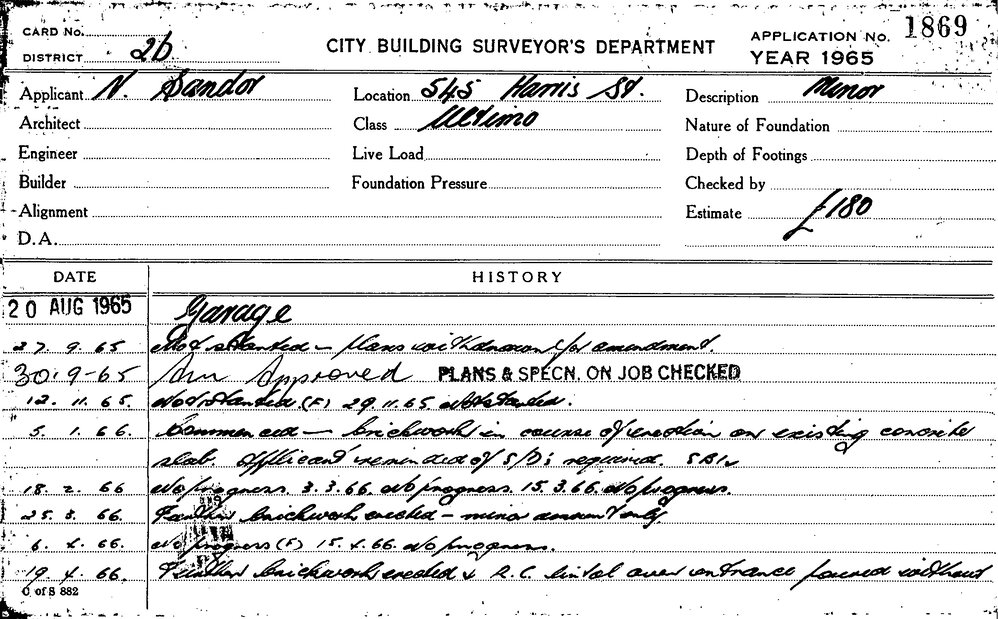 CARD No.
DISTRICT 2b
CITY BUILDING SURVEYOR'S DEPARTMENT
APPLICATION No. 1869
YEAR 1965
Applicant N. Sandor
Location 545 Harris St.
Description Minor
Architect
Class Ultimo
Nature of Foundation
Engineer
Live Load
Depth of Footings
Builder
Foundation Pressure
Checked by
Alignment
Estimate £180
D.A.
DATE HISTORY
20 AUG 1965 Garage
27. 9. 65 Not started – plans withdrawn for amendment.
30.9-65 Approved PLANS & SPECN. ON JOB CHECKED
12. 11. 65. Not started. (F) 29.11.65. Not started.
5. 1. 66. Commenced – brickwork in course of erection on existing concrete
slab. Applicant reminded of S/D's required.
18. 2. 66 No progress. 3.3.66. No progress. 15.3.66. No progress.
25. 3. 66. Further brickwork erected – minor amount only.
6. 4. 66. No progress (F) 15.4.66. No progress.
19. 4. 66. Further brickwork erected & R.C. lintol over entrance poured without
C. of S 882